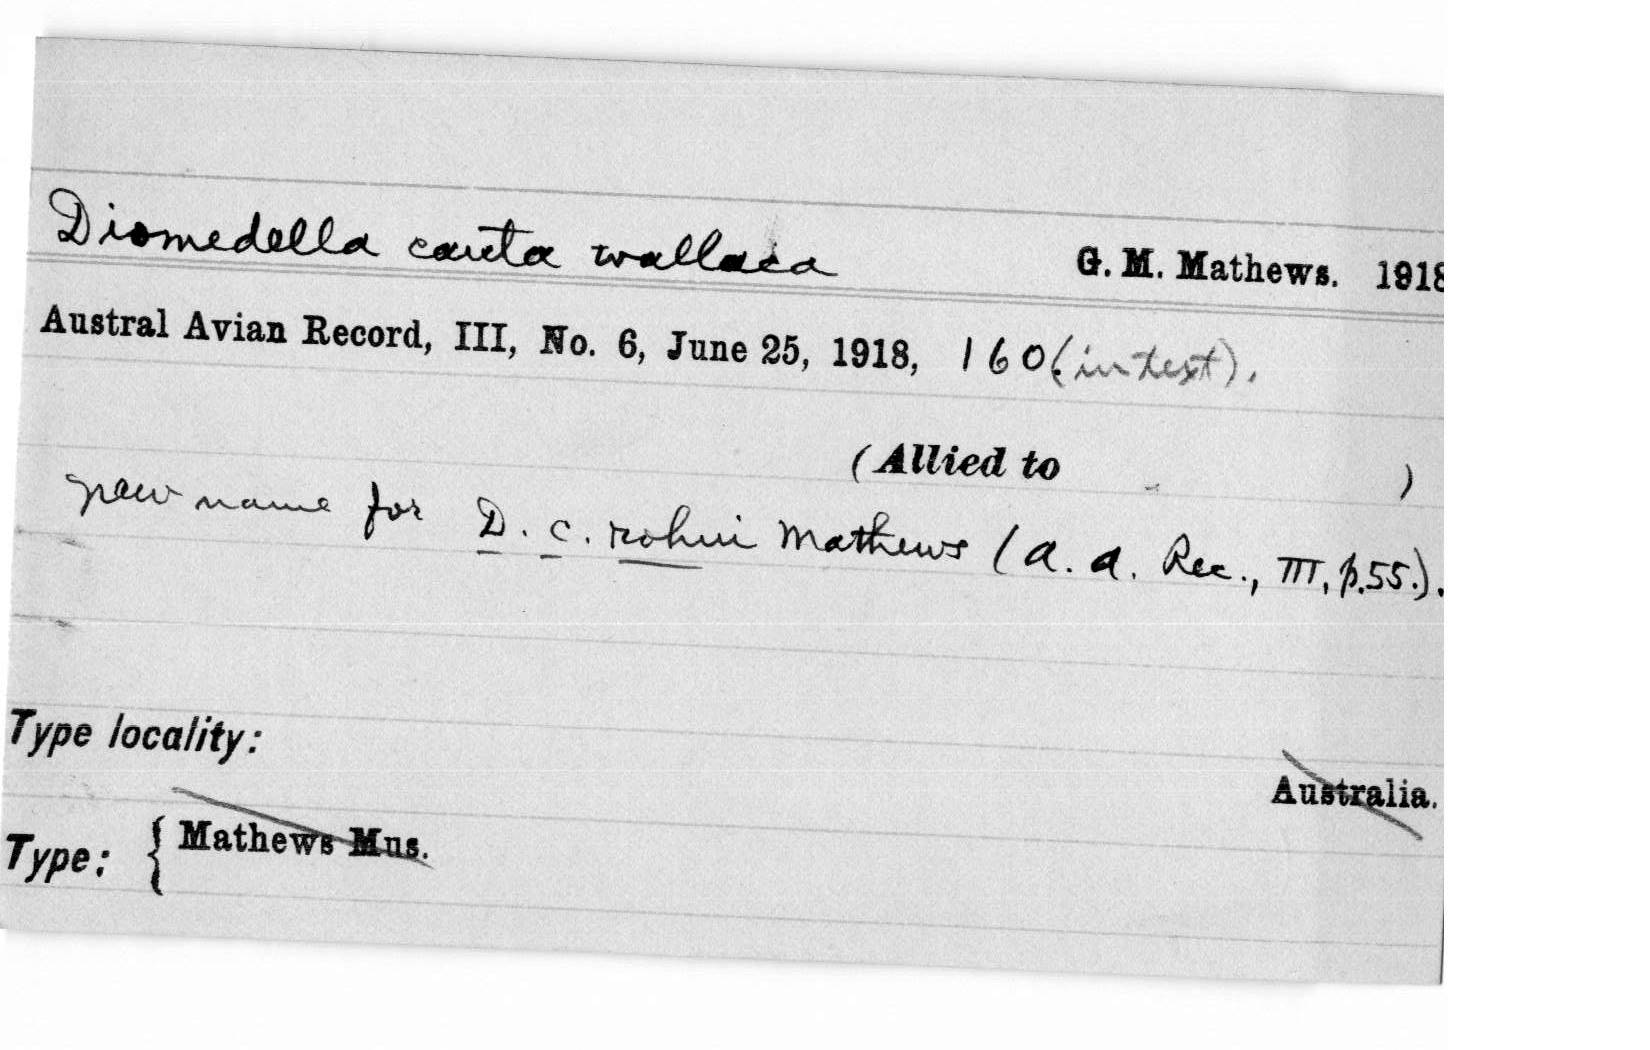 Diomedella cauta wallaca G. M. Mathews. 1918
Austral Avian Record, III, No. 6, June 25, 1918, 160 (in text).
(Allied to )
New name for D. c. rohui Mathews (A. A. Rec., III, p.55.).
Type locality:
Australia.
Type: { Mathews Mus.